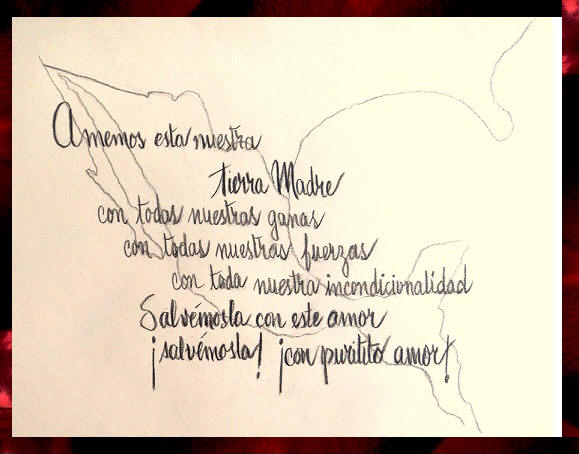 Amemos esta nuestra
tierra Madre
con todas nuestras ganas
con todas nuestras fuerzas
con toda nuestra incondicionalidad
Salvémosla con este amor
¡salvémosla! ¡con puritito amor!